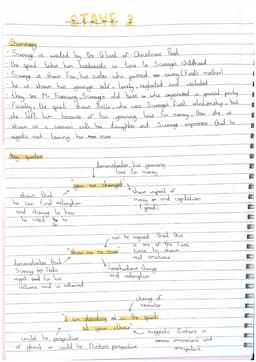 STAVE 2
Summary
- Scrooge is visited by the Ghost of Christmas Past
- The spirit takes him backwards in time to Scrooge's childhood
- Scrooge is shown Fan, his sister who passed away (Fred's mother)
- he is shown his younger self - lonely, neglected and isolated
- They see Mr Fezziwig, Scrooge's old boss who organised a joyous party
- Finally, the spirit shows Belle, who was Scrooge's first relationship, but
she left him because of his growing love for money, then she is
shown as a woman with her daughter and Scrooge expresses that he
regrets not having
Key quotes
demonstrates his growing
love for money
"you are changed"
shows that
he can find redemption
and change to how
he used to
shows impact of
money and capitalism
(greed)
"show me no more"
can be argued that this
is one of the first
times he shows
real emotions
demonstrates that
Scrooge far feels
regret for his
actions and is ashamed
foreshadows change
and redemption
change of
narrator
"I am standing in the spirit
at your elbow"
could be perspective
of ghost or could be Dickens' perspective
suggests Dickens is
omnipotent